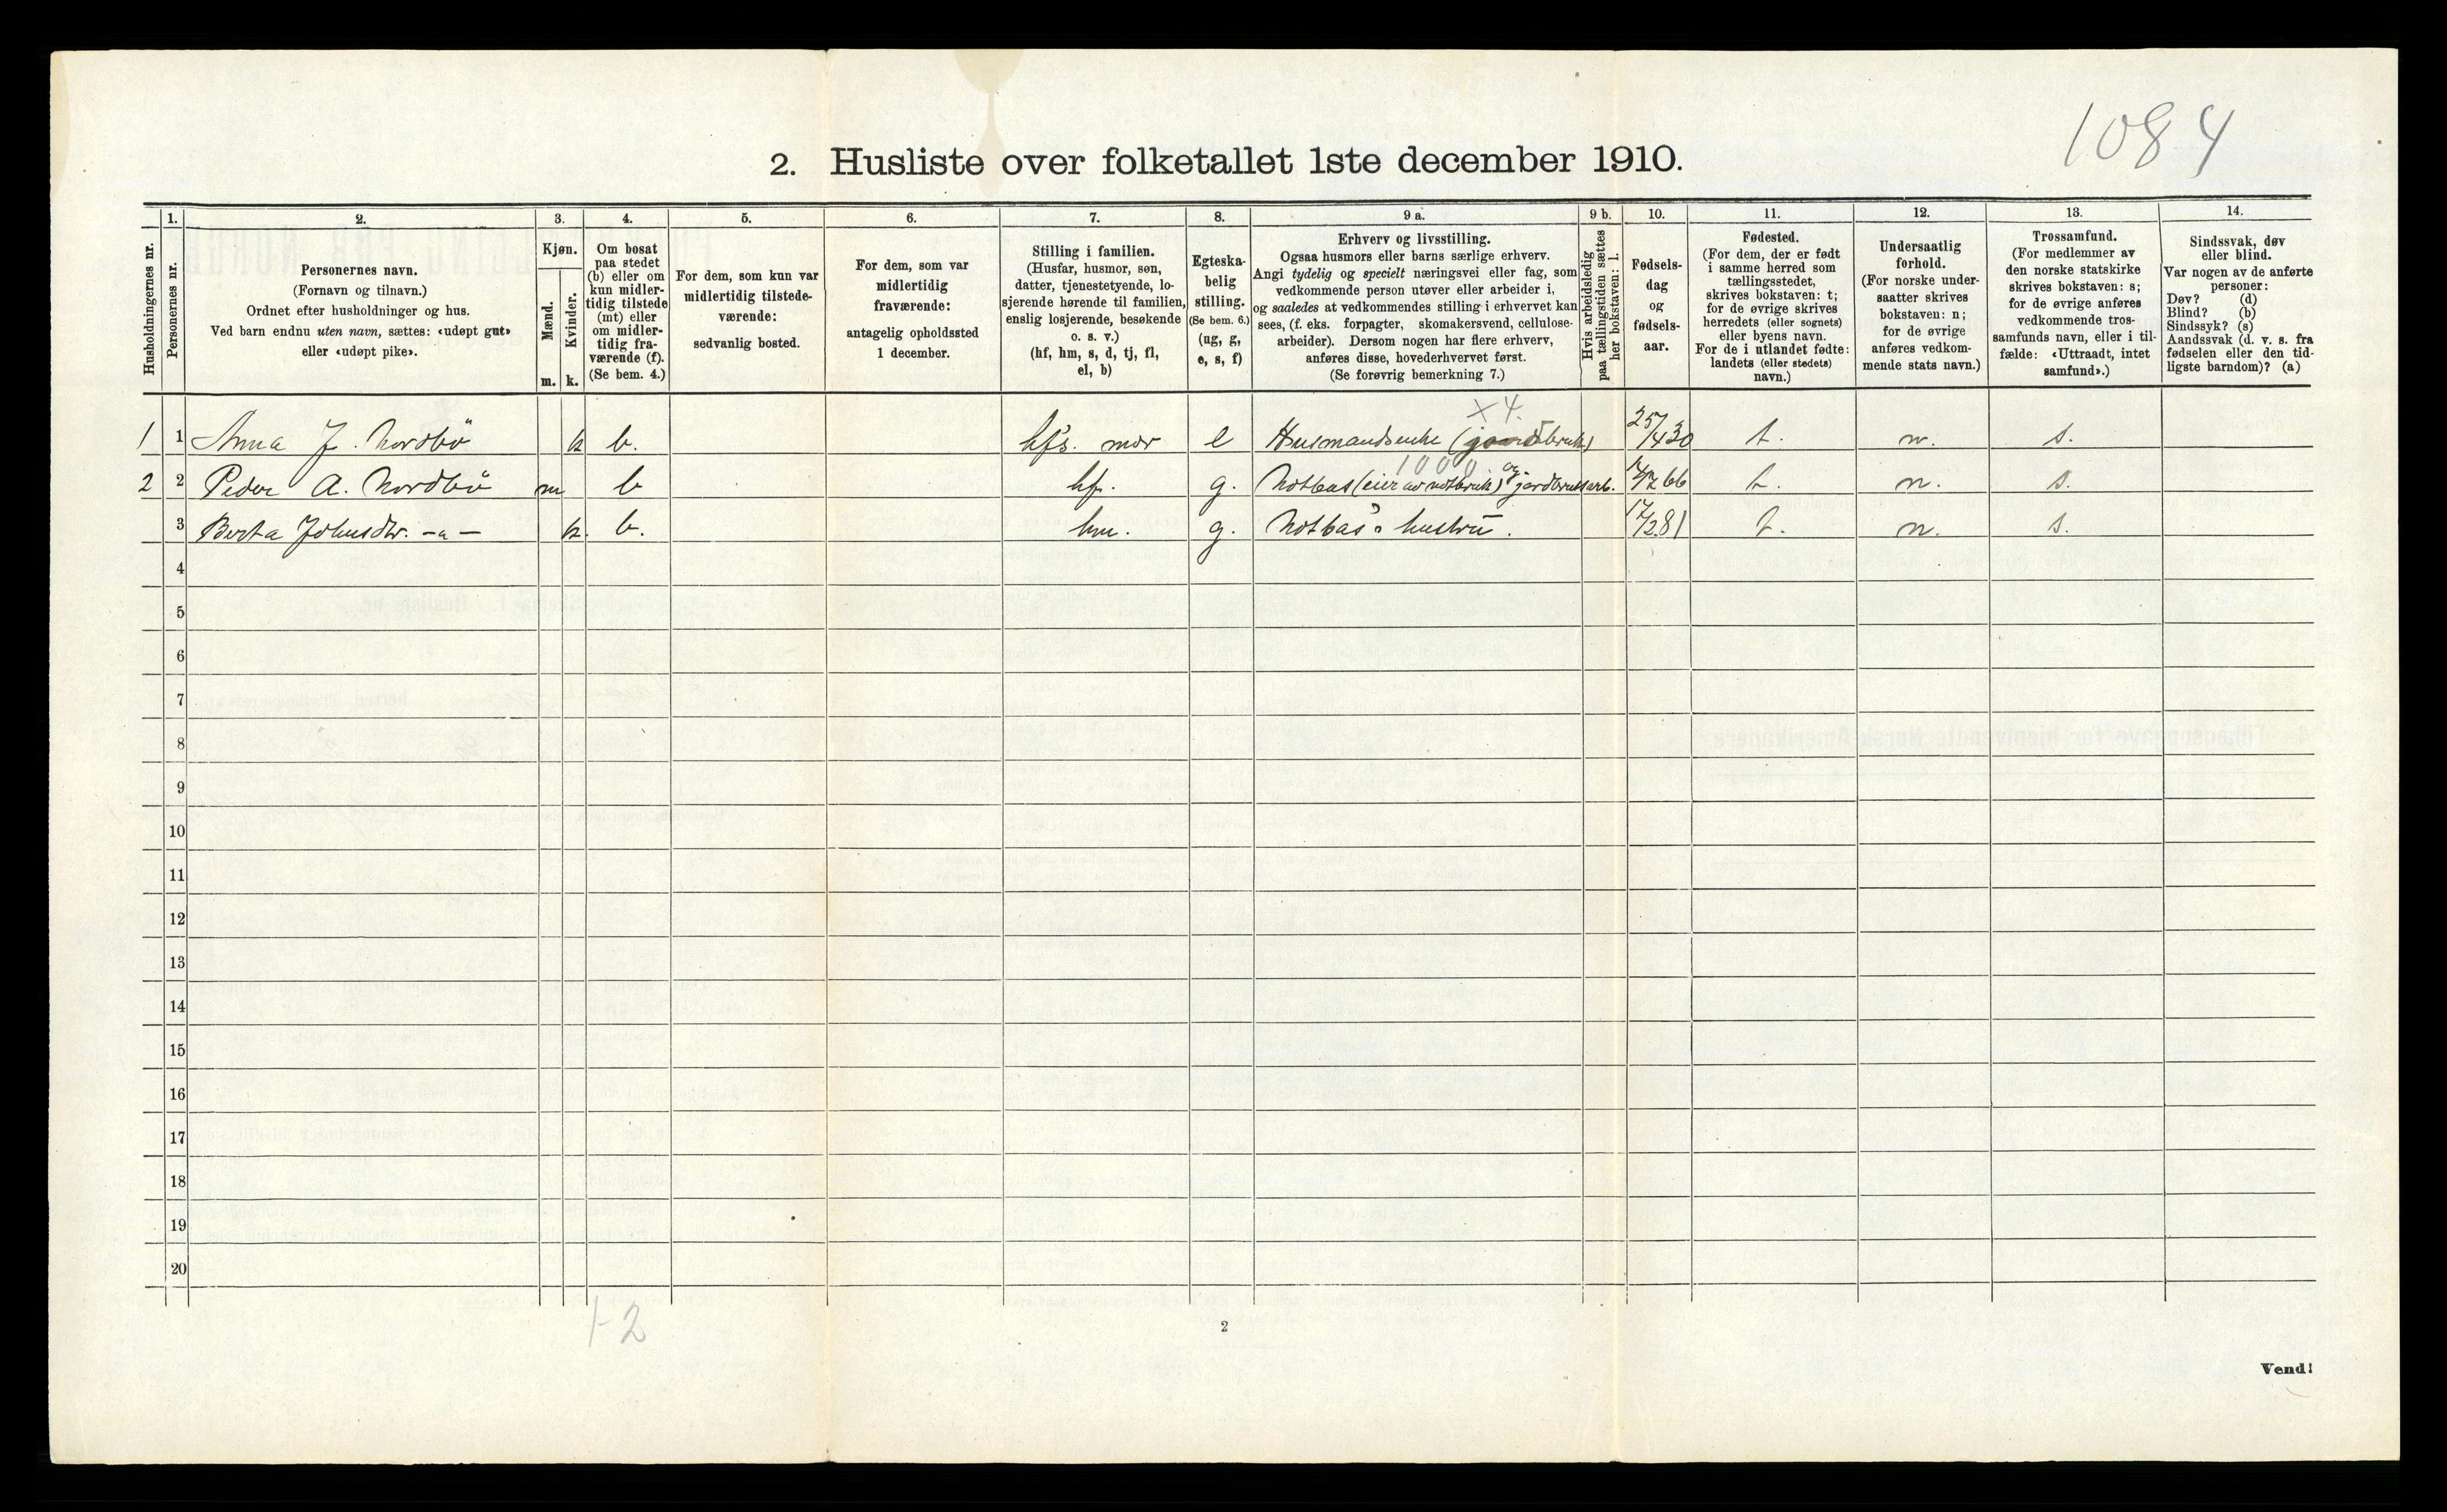 1084
2. Husliste over folketallet 1ste december 1910.
1. 2. 3. 4. 5. 6. 7. 8. 9 a. 9 b. 10. 11. 12. 13. 14.
Husholdningernes nr.
Personernes nr.
Personernes navn.
(Fornavn og tilnavn.)
Ordnet efter husholdninger og hus.
Ved barn endnu uten navn, sættes: «udøpt gut»
eller «udøpt pike».
Kjøn.
Mænd.
Kvinder.
m. k.
Om bosat
paa stedet
(b) eller om
kun midler-
tidig tilstede
(mt) eller
om midler-
tidig fra-
værende (f).
(Se bem. 4.)
For dem, som kun var
midlertidig tilstede-
værende:
sedvanlig bosted.
For dem, som var
midlertidig
fraværende:
antagelig opholdssted
1 december.
Stilling i familien.
(Husfar, husmor, søn,
datter, tjenestetyende, lo-
sjerende hørende til familien,
enslig losjerende, besøkende
o. s. v.)
(hf, hm, s, d, tj, fl,
el, b)
Egteska-
belig
stilling.
(Se bem. 6.)
(ug, g,
e, s, f)
Erhverv og livsstilling.
Ogsaa husmors eller barns særlige erhverv.
Angi tydelig og specielt næringsvei eller fag, som
vedkommende person utøver eller arbeider i,
og saaledes at vedkommendes stilling i erhvervet kan
sees, (f. eks. forpagter, skomakersvend, cellulose-
arbeider). Dersom nogen har flere erhverv,
anføres disse, hovederhvervet først.
(Se forøvrig bemerkning 7.)
Hvis arbeidsledig
paa tællingstiden sættes
her bokstaven: l.
Fødsels-
dag
og
fødsels-
aar.
Fødested.
(For dem, der er født
i samme herred som
tællingsstedet,
skrives bokstaven: t;
for de øvrige skrives
herredets (eller sognets)
eller byens navn.
For de i utlandet fødte:
landets (eller stedets)
navn.)
Undersaatlig
forhold.
(For norske under-
saatter skrives
bokstaven: n;
for de øvrige
anføres vedkom-
mende stats navn.)
Trossamfund.
(For medlemmer av
den norske statskirke
skrives bokstaven: s;
for de øvrige anføres
vedkommende tros-
samfunds navn, eller i til-
fælde: «Uttraadt, intet
samfund».)
Sindssvak, døv
eller blind.
Var nogen av de anførte
personer:
Døv? (d)
Blind? (b)
Sindssyk? (s)
Aandssvak (d. v. s. fra
fødselen eller den tid-
ligste barndom)? (a)
X 4.
1 1 Anna J. Nordbö k b. hfs. mor e Husmandsenke (jordbruk) 25/4 30 t. n. s.
1000
2 2 Peder A. Nordbö m b hf. g. Notbas (eier av notbruk) og jordbruksarb. 66 t. n. s.
3 Berta Johnsdtr. -"- k. b. hm. g. Notbas's hustru. 17/2 81 t. n. s.
4
5
6
7
8
9
10
11
12
13
14
15
16
17
18
19
20
1-2
2
Vend!